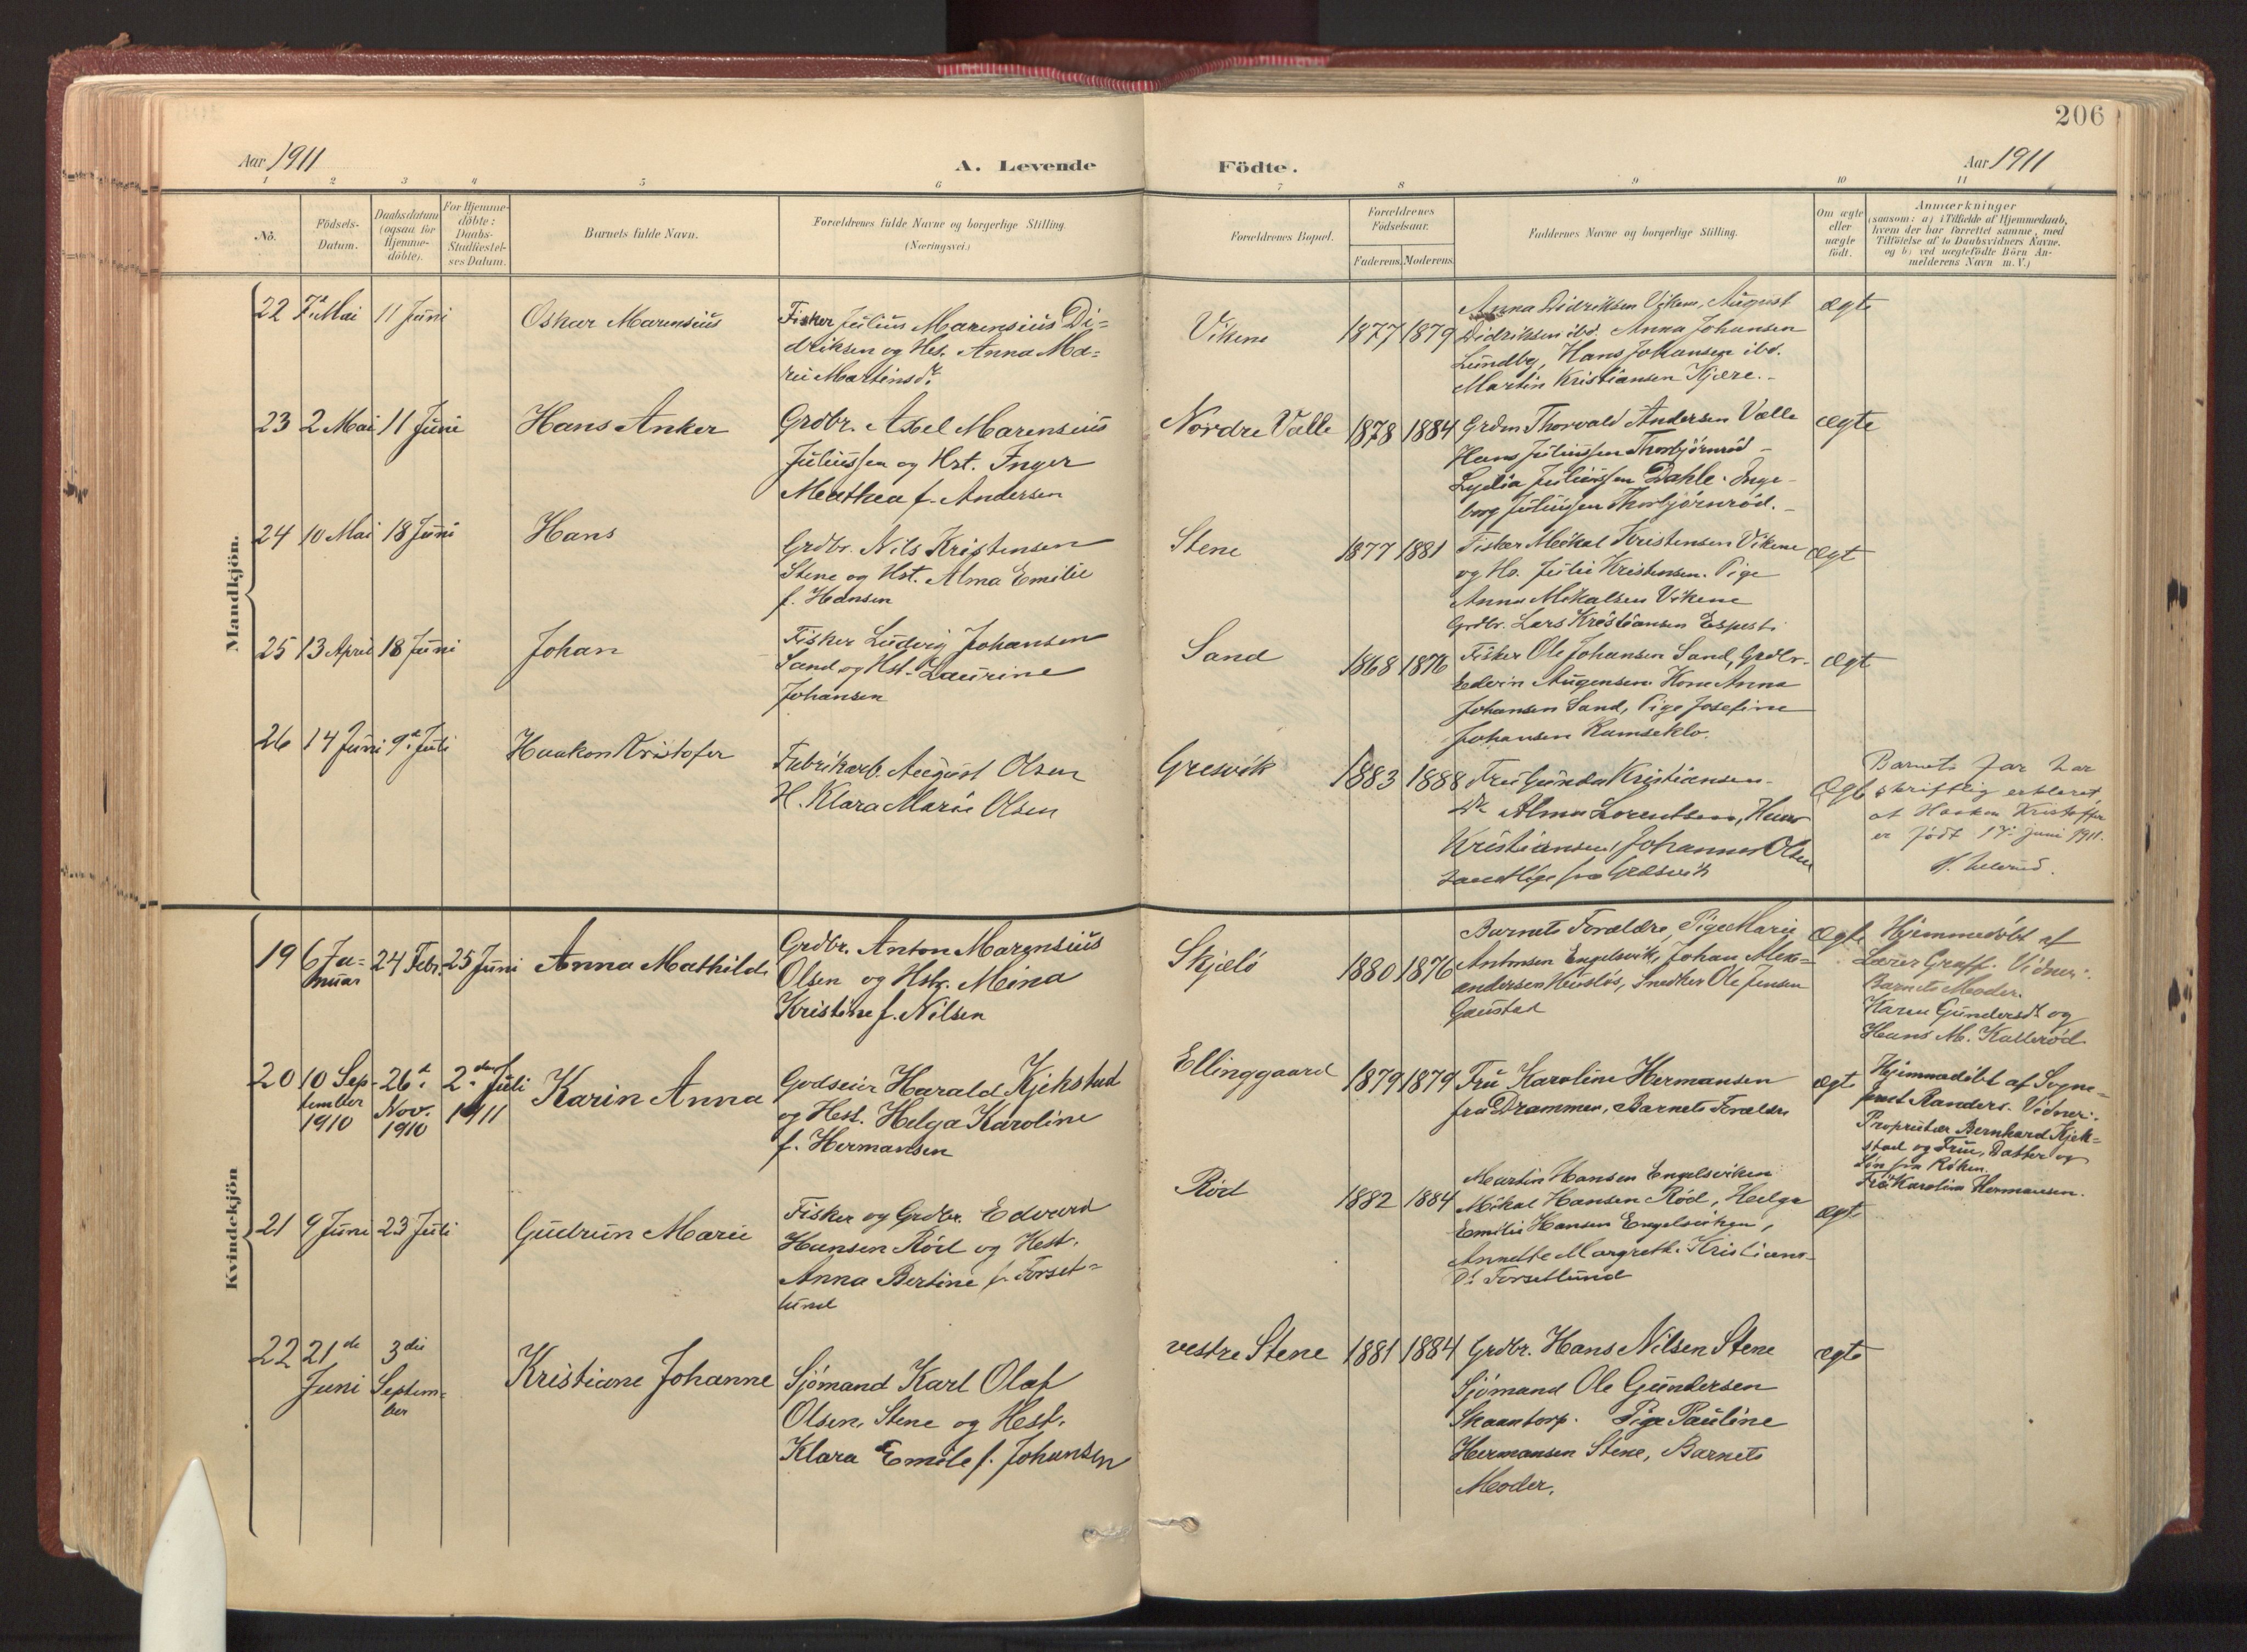 206
Aar 1911
A. Levende
Födte.
Aar 1911
1 2 3 4 5 6 7 8 9 10 11
No.
Födsels-
Datum.
Daabsdatum
(ogsaa for
Hjemme-
döbte).
For Hjemme-
döbte:
Daabs-
Stadfæstel-
ses Datum.
Barnets fulde Navn.
Forældrenes fulde Navne og borgerlige Stilling
(Næringsvei.)
Forældrenes Bopæl.
Forældrenes
Födselsaar.
Faderens. Moderens.
Faddernes Navne og borgerlige Stilling.
Om ægte
eller
uægte
födt.
Anmærkninger
(saasom: a) i Tilfælde af Hjemmedaab,
hvem der har forrettet samme, med
Tilföielse af to Daabsvidners Navne,
og b) ved uægtefödte Börn An-
melderens Navn m. V.)
Mandkjön.
22 7de Mai 11 Juni Oskar Marensius
Fisker Julius Marensius Di-
driksen og Hst. Anna Ma-
rie Martinsdr.
Vikene 1877 1879
Anna Didriksen Vikene, August
Didriksen ibd. Anna Johansen
Lundby, Hans Johansen ibd.
Martin Kristiansen Kjære.
ægte
23 2 Mai 11 Juni Hans Anker
Grdbr. Axel Marensius
Juliussen og Hst. Inger
Mathea f. Andersen
Nordre Valle 1878 1884
Grdm Thorvald Andersen Valle
Hans Juliussen Thorbjörnröd
Lydia Juliussen Dahle. Inge-
borg Juliussen Thorbjörnröd.
ægte
24 10 Mai 18 Juni Hans
Grdbr. Nils Kristensen
Stene og Hst. Alma Emilie
f. Hansen
Stene 1877 1881
Fisker Mikal Kristensen Vikene
og Hs. Julie Kristensen. Pige
Anna Mikalsen Vikene
Grdbr. Lars Kristiansen
ægt
25 13 April 18 Juni Johan
Fisker Ludvig Johansen
Sand og Hst. Laurine
Johansen
Sand 1868 1876
Fisker Ole Johansen Sand, Grdbr.
Edvin Augensen. Kone Anna
Johansen Sand, Pige Josefine
Johansen Ramseklo.
ægt
26 14 Juni 9de Juli Haakon Kristofer
Fabrikarb. August Olsen
H. Klara Marie Olsen
Gresvik 1883 1888
Fru Gunda Kristiansen
Alma Lorentsen, Hans
Kristiansen, Johannes Olsen
samtlige fra Gresvik
Ægt
Barnets far har
skriftlig erklæret,
at Haakon Kristoffer
er født 17. juni 1911.
Kvindekjön
19 6 Ja-
nuar
24 Febr. 25 Juni Anna Mathilde
Grdbr. Anton Marensius
Olsen og Hst. Mina
Kristine f. Nilsen
Skjælö 1880 1876
Barnets Forældre, Pige Marie
Antonsen Engelsvik, Johan Alex-
andersen Huslös, Snedker Ole Jensen
Gaustad
Ægte
Hjemmedöbt af
Lærer Graff. Vidner:
Barnets Moder.
Karen Gundersdt. og
Hans M. Kallerød.
20 10 Sep-
tember
1910
26de
Nov.
1910
2den Juli
1911
Karin Anna
Godseier Harald Kjekstad
og Hst. Helga Karoline
f. Hermansen
Ellinggaard 1879 1879
Fru Karoline Hermansen
fra Drammen, Barnets Forældre
ægte
Hjemmedöbt af Sogne-
prest Randers. Vidner:
Proprietær Bernhard Kjek-
stad og Frue, Datter og
Søn fra Røken.
Frk. Karoline Hermansen.
21 9 Juni 23 Juli Gudrun Marie
Fisker og Grdbr. Edvard
Hansen Röd og Hst.
Anna Bertine f. Forset-
lund
Röd 1882 1884
Martin Hansen Engelsviken
Mikal Hansen Röd, Helga
Emilie Hansen Engelsviken,
Annette Margreth. Kristians-
Dt. Forsetlund
ægte
22 21de
Juni
3die
Septem-
ber
Kristiane Johanne
Sjömand Karl Olaf
Olsen, Stene og Hst.
Klara Emilie f. Johansen
vestre Stene 1881 1884
Grdbr. Hans Nilsen Stene
Sjömand Ole Gundersen
Skaantorp. Pige Pauline
Hermansen Stene, Barnets
Moder.
ægte